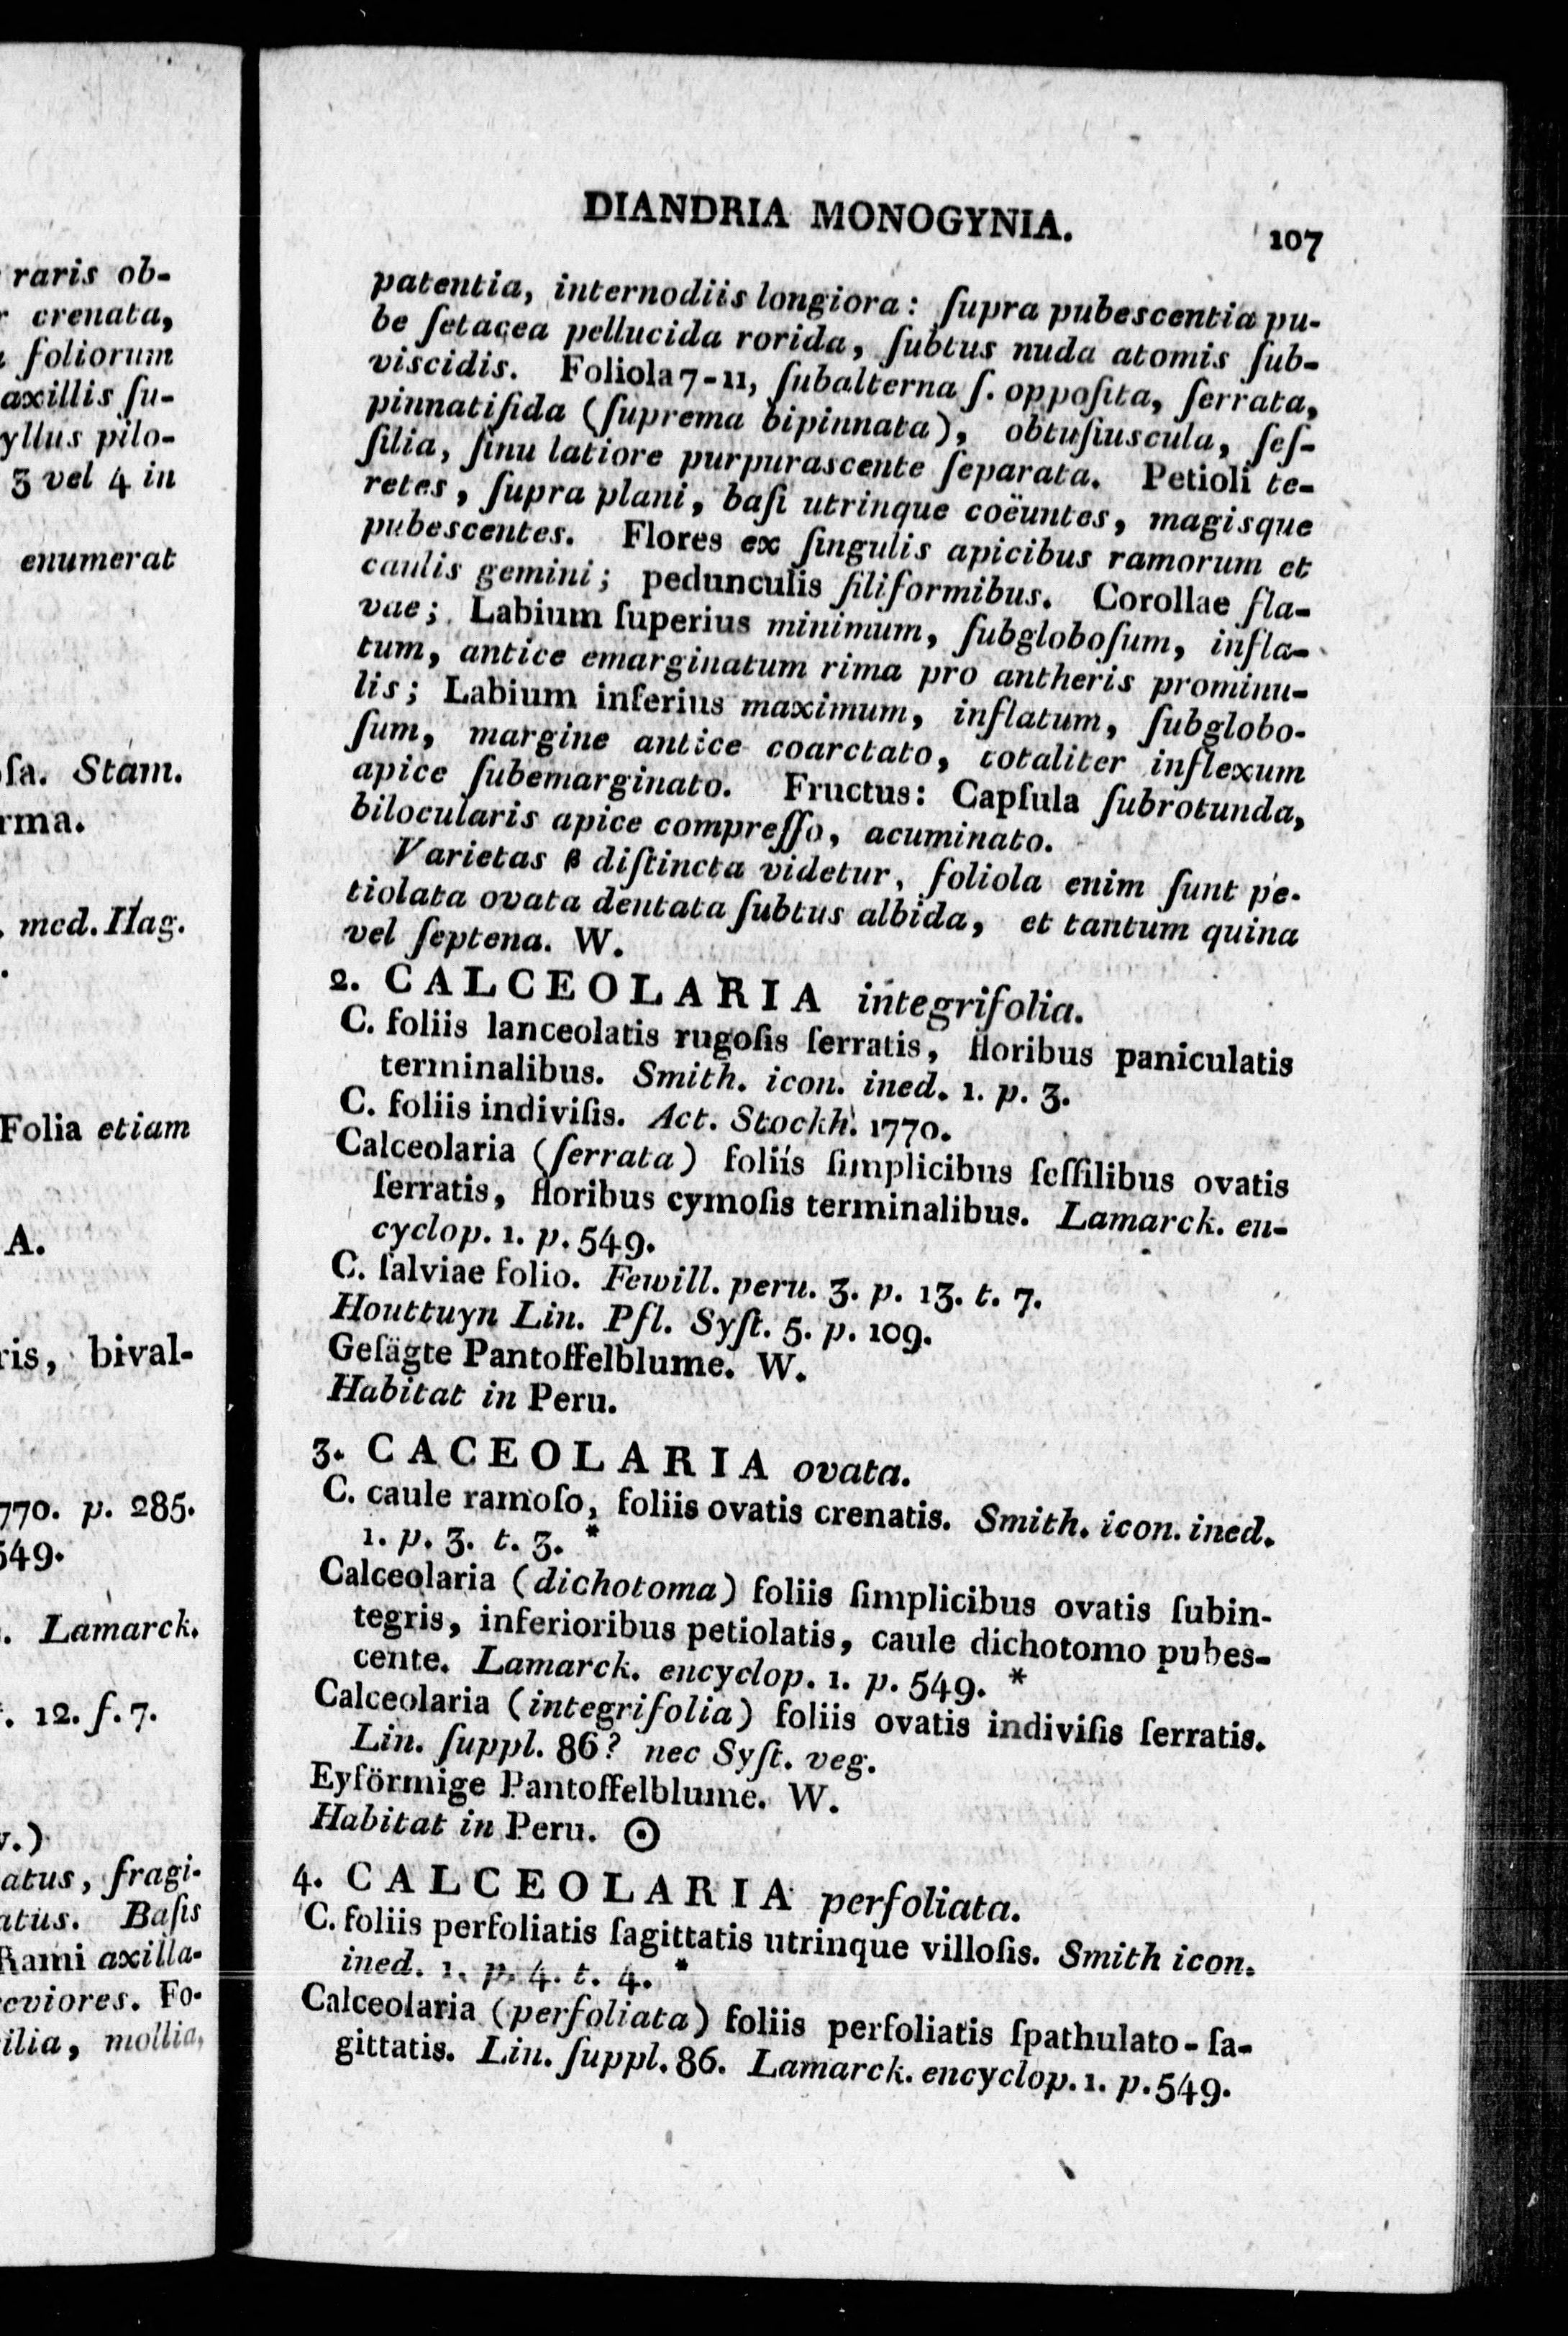 raris ob-
crenata,
foliorum
axillis ſu-
yllus pilo-
3 vel 4 in
enumerat
ſa. Stam.
rma.
med. Hag.
Folia etiam
A.
ris, bival-
770. p. 285.
549.
Lamarck.
12. f. 7.
v.)
atus, fragi-
atus. Baſis
Rami axilla-
eviores. Fo-
ilia, mollia,
DIANDRIA MONOGYNIA. 107
patentia, internodiis longiora: ſupra pubescentia pu-
be ſetacea pellucida rorida, ſubtus nuda atomis ſub-
viscidis. Foliola 7-11, ſubalterna ſ. oppoſita, ſerrata,
pinnatifida (ſuprema bipinnata), obtuſiuscula, ſeſ-
ſilia, ſinu latiore purpurascente ſeparata. Petioli te-
retes, ſupra plani, baſi utrinque coëuntes, magisque
pubescentes. Flores ex ſingulis apicibus ramorum et
caulis gemini; pedunculis filiformibus. Corollae fla-
vae; Labium ſuperius minimum, ſubgloboſum, infla-
tum, antice emarginatum rima pro antheris prominu-
lis; Labium inferius maximum, inflatum, ſubglobo-
ſum, margine antice coarctato, totaliter inflexum
apice ſubemarginato. Fructus: Capſula ſubrotunda,
bilocularis apice compreſſo, acuminato.
Varietas β diſtincta videtur, foliola enim ſunt pe-
tiolata ovata dentata ſubtus albida, et tantum quina
vel ſeptena. W.
2. CALCEOLARIA integrifolia.
C. foliis lanceolatis rugoſis ſerratis, floribus paniculatis
terminalibus. Smith. icon. ined. 1. p. 3.
C. foliis indiviſis. Act. Stockh. 1770.
Calceolaria (ſerrata) foliis ſimplicibus ſeſſilibus ovatis
ſerratis, floribus cymoſis terminalibus. Lamarck. en-
cyclop. 1. p. 549.
C. ſalviae folio. Fewill. peru. 3. p. 13. t. 7.
Houttuyn Lin. Pfl. Syſt. 5. p. 109.
Geſägte Pantoffelblume. W.
Habitat in Peru.
3. CACEOLARIA ovata.
C. caule ramoſo, foliis ovatis crenatis. Smith. icon. ined.
1. p. 3. t. 3. *
Calceolaria (dichotoma) foliis ſimplicibus ovatis ſubin-
tegris, inferioribus petiolatis, caule dichotomo pubes-
cente. Lamarck. encyclop. 1. p. 549. *
Calceolaria (integrifolia) foliis ovatis indiviſis ſerratis.
Lin. ſuppl. 86? nec Syſt. veg.
Eyförmige Pantoffelblume. W.
Habitat in Peru. ☉
4. CALCEOLARIA perfoliata.
C. foliis perfoliatis ſagittatis utrinque villoſis. Smith icon.
ined. 1. p. 4. t. 4. *
Calceolaria (perfoliata) foliis perfoliatis ſpathulato-ſa-
gittatis. Lin. ſuppl. 86. Lamarck. encyclop. 1. p. 549.